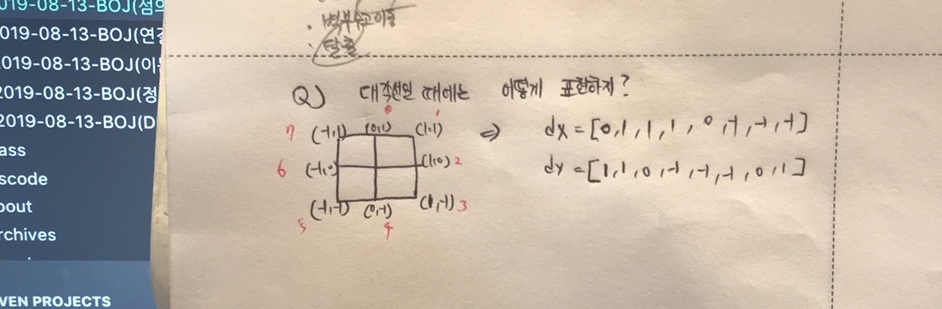 019-08-13-BOJ(섬의
019-08-13-BOJ(연결
019-08-13-BOJ(이
2019-08-13-BOJ(정
2019-08-13-BOJ(D
ass
scode
out
rchives
VEN PROJECTS
· 벽부수고이동
· 탈출
Q) 대각선일 때에는 어떻게 표현하지?
0 1
7 (-1,1) (0,1) (1,1) ⇒ dx = [0,1,1,1,0,-1,-1,-1]
6 (-1,0) (1,0) 2 dy = [1,1,0,-1,-1,-1,0,1]
5 (-1,-1) (0,-1) (1,-1) 3
4